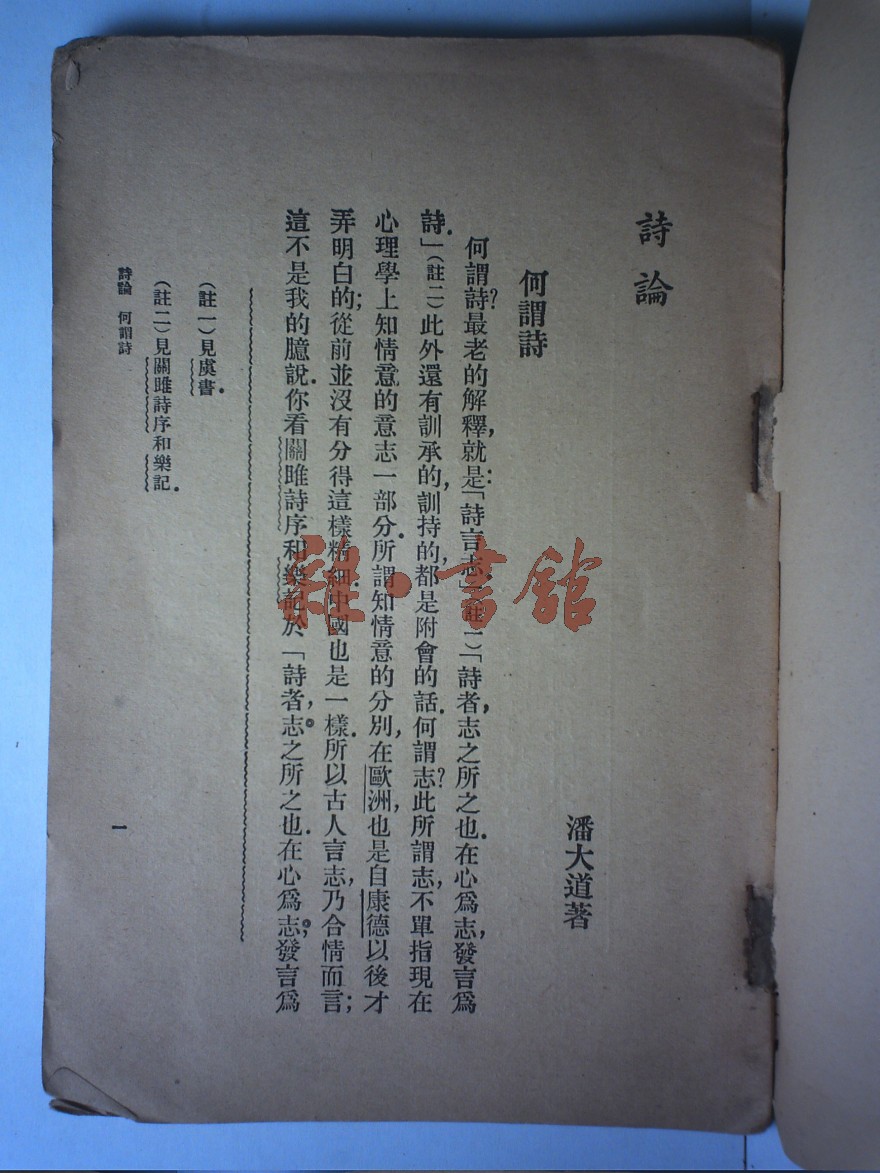 詩論
潘大道著
何謂詩
何謂詩?最老的解釋,就是:「詩言志.」(註一)「詩者,志之所之也.在心爲志,發言爲
詩.」(註二)此外還有訓承的,訓持的,都是附會的話.何謂志?此所謂志,不單指現在
心理學上知情意的意志一部分.所謂知情意的分別,在歐洲,也是自康德以後才
弄明白的;從前並沒有分得這樣精細.中國也是一樣.所以古人言志,乃合情而言;
這不是我的臆說.你看關雎詩序和樂記於「詩者,志之所之也.在心爲志;發言爲
(註一)見虞書.
(註二)見關雎詩序和樂記.
詩論 何謂詩
一
雜·書館